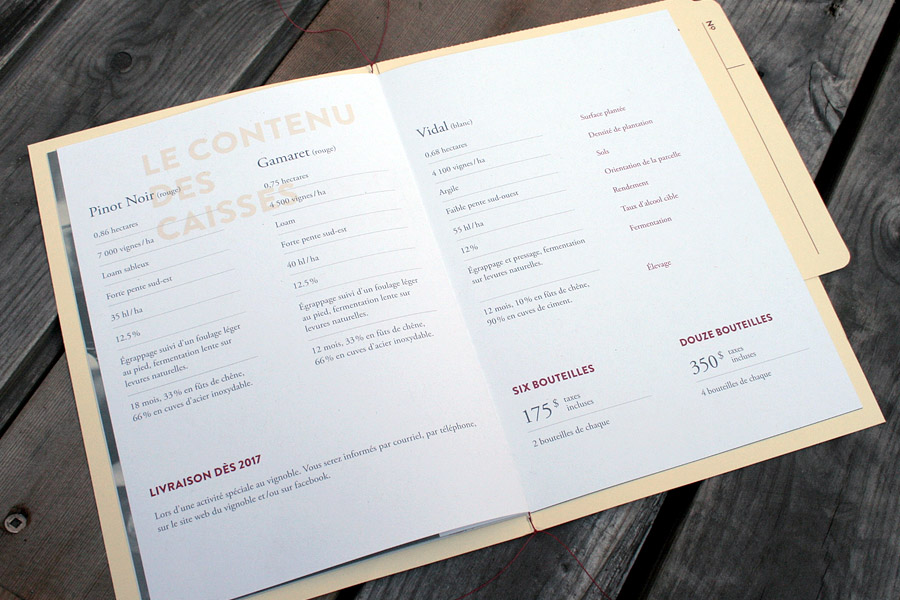 LE CONTENU
DES
CAISSES
Pinot Noir (rouge)
0,86 hectares
7 000 vignes/ha
Loam sableux
Forte pente sud-est
35 hl/ha
12.5 %
Égrappage suivi d'un foulage léger
au pied, fermentation lente sur
levures naturelles.
18 mois, 33 % en fûts de chêne,
66 % en cuves d'acier inoxydable.
Gamaret (rouge)
0,75 hectares
4 500 vignes/ha
Loam
Forte pente sud-est
40 hl/ha
12.5 %
Égrappage suivi d'un foulage léger
au pied, fermentation lente sur
levures naturelles.
12 mois, 33 % en fûts de chêne,
66 % en cuves d'acier inoxydable.
LIVRAISON DÈS 2017
Lors d'une activité spéciale au vignoble. Vous serez informés par courriel, par téléphone,
sur le site web du vignoble et/ou sur facebook.
Vidal (blanc)
0,68 hectares
4 100 vignes/ha
Argile
Faible pente sud-ouest
55 hl/ha
12 %
Égrappage et pressage, fermentation
sur levures naturelles.
12 mois, 10 % en fûts de chêne,
90 % en cuves de ciment.
Surface plantée
Densité de plantation
Sols
Orientation de la parcelle
Rendement
Taux d'alcool cible
Fermentation
Élevage
SIX BOUTEILLES
175 $ taxes
incluses
2 bouteilles de chaque
DOUZE BOUTEILLES
350 $ taxes
incluses
4 bouteilles de chaque
Nº